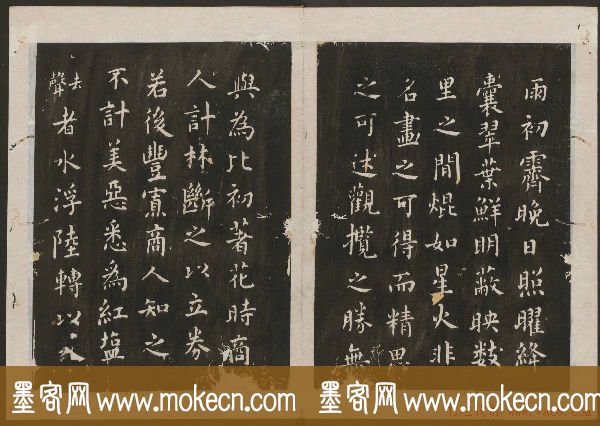 雨初霽晚日照曜絳
囊翠葉鮮明蔽映數
里之間焜如星火非
名畫之可得而精思
之可述觀攬之勝無
與為比初著花時商
人計林斷之以立券
若後豐寡商人知之
不計美惡悉為紅鹽
去聲者水浮陸轉以入
墨客网 www.mokecn.com 墨客网 www.mokecn.com